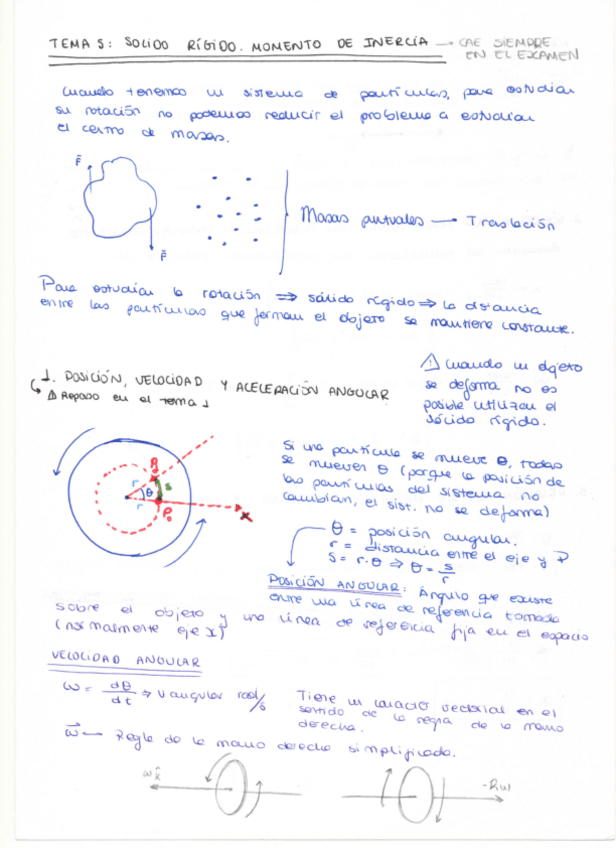 TEMA 5: SOLIDO RÍGIDO. MOMENTO DE INERCIA → CAE SIEMPRE
EN EL EXAMEN
Cuando tenemos un sistema de partículas, para estudiar
su rotación no podemos reducir el problema a estudiar
el centro de masas.
F
F
Masas puntuales → Traslación
Para estudiar la rotación ⇒ sólido rígido ⇒ la distancia
entre las partículas que forman el objeto se mantiene constante.
1. POSICIÓN, VELOCIDAD Y ACELERACIÓN ANGULAR
⚠ Repaso en el tema 1
⚠ Cuando un objeto
se deforma no es
posible utilizar el
sólido rígido.
P1
r
θ
s
r
P0
x
Si una partícula se mueve θ, todas
se mueven θ (porque la posición de
las partículas del sistema no
cambian, el sist. no se deforma)
θ = posición angular.
r = distancia entre el eje y P
S = r·θ ⇒ θ = s/r
POSICIÓN ANGULAR: Ángulo que existe
entre una línea de referencia tomada
sobre el objeto y una línea de referencia fija en el espacio
(normalmente eje x)
VELOCIDAD ANGULAR
ω = dθ/dt ⇒ v angular rad/s
Tiene un caracter vectorial en el
sentido de la regla de la mano
derecha.
ω → Regla de la mano derecha simplificada.
ωk
-kω